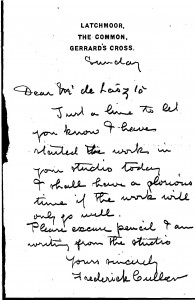 LATCHMOOR,
THE COMMON,
GERRARD'S CROSS.
Sunday
Dear Mr de László
Just a line to let
you know I have
started the works in
your studio today
I shall have a glorious
time if the work will
only go well.
Please excuse pencil I am
writing from the studio
Yours sincerely
Frederick Cullen